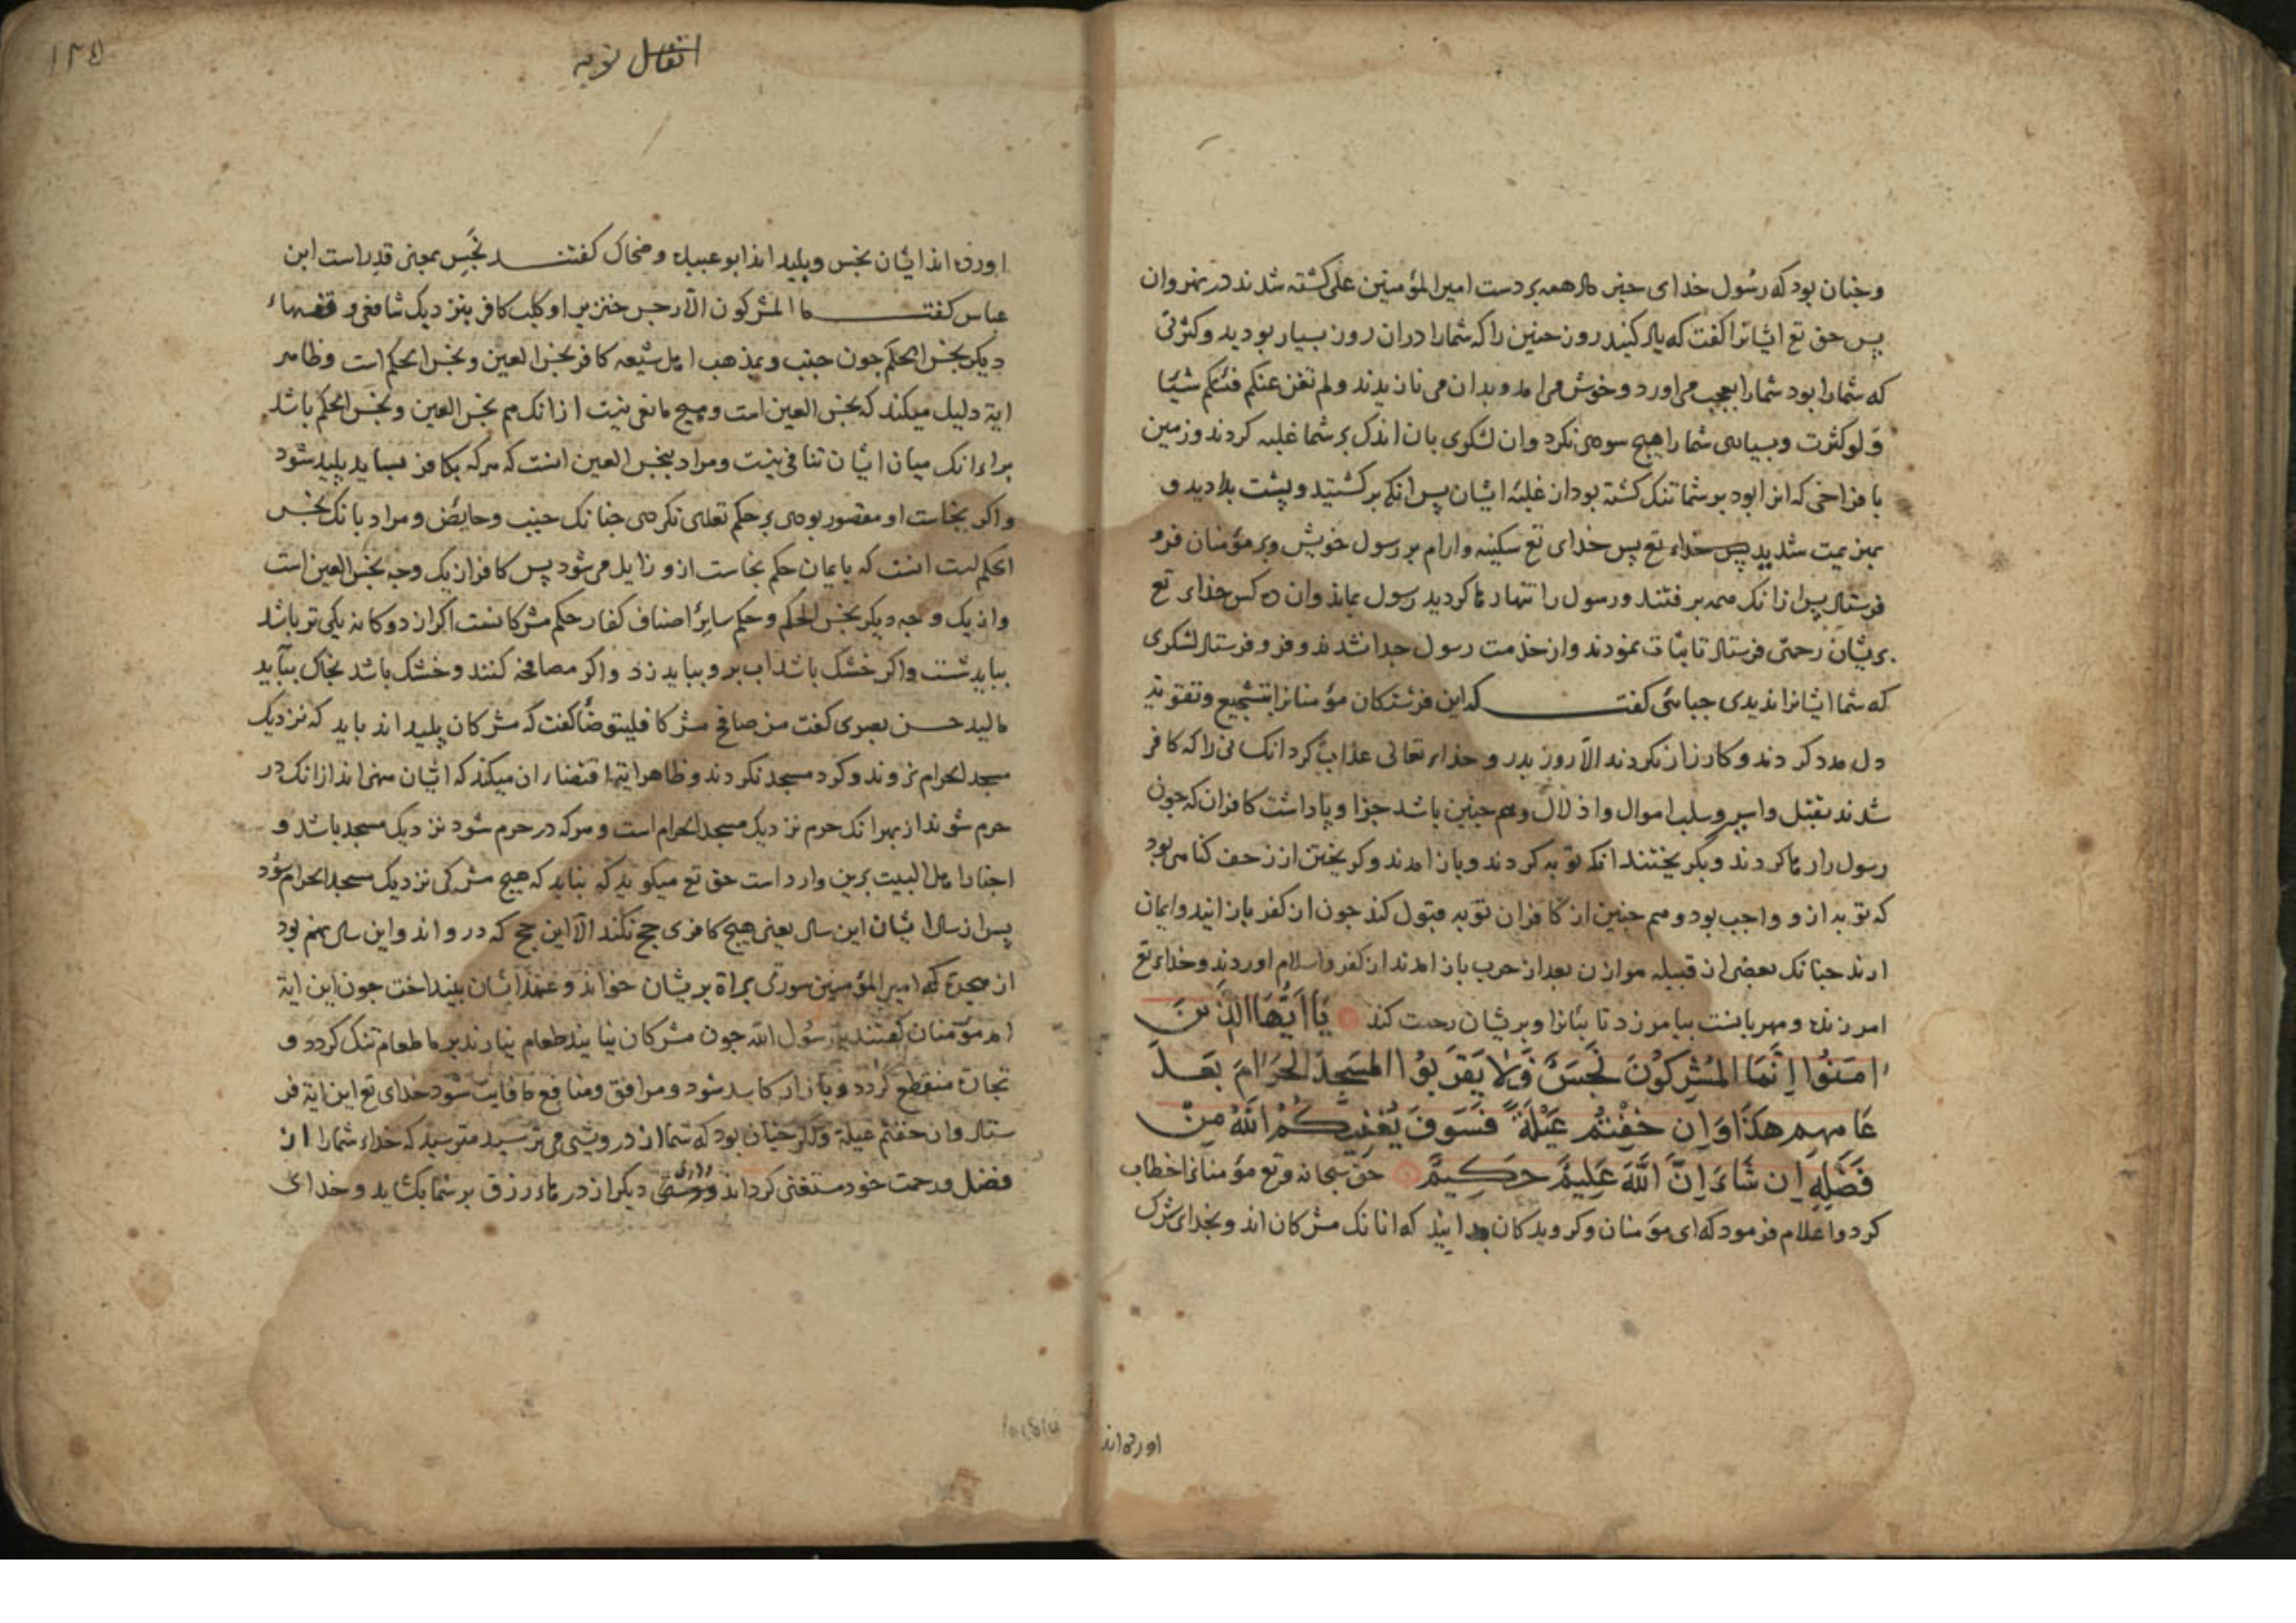 وجنان بود که رسول خدای خبر داد همه بر دست امیر المؤمنین علی کشته شدند در نهروان
پس حق تع ایشانرا کفت که یاد کنید روز حنین را که شمارا دران روز بسیار بودید وکثرتی
که شمارا بود شمارا بعجب می اورد وخوش می امد وبدان می نازیدند ولم تغن عنکم فئتکم شیئا
ولو کثرت وبسیاری شما را هیچ سودی نکرد وان لشکری بان اندکی بر شما غلبه کردند وزمین
با فراخی که انرا بود بر شما تنک کشته بود از غلبه ایشان پس انکه برکشتید وپشت بدادید و
بهزیمت شدید پس خداء تع پس خدای تع سکینه وارام بر رسول خویش وبر مؤمنان فرو
فرستاد پس ازانک همه برفتند ورسول را تنها رها کردید رسول بماند وان ده کس خداء تع
بریشان رحمتی فرستاد تا ثبات نمودند واز خدمت رسول جدا نشدند وفرو فرستاد لشکری
که شما ایشانرا ندیدی جبائی کفت که این فرشتکان مؤمنانرا بتشجیع وتقویت
دل مدد کردند وکارزار نکردند الا روز بدر وخداء تعالی عذاب کرد انکسانی را که کافر
شدند بقتل واسر وسلب اموال واذلال وهم جنین باشد جزا وپاداشت کافران که جون
رسول را رها کردند وبکریختند انکه توبه کردند وباز امدند وکریختن از زحف کناهی بود
که توبه ازو واجب بود وهم جنین از کافران توبه قبول کند جون از کفر باز ایند وایمان
ارند جنانک بعضی از قبیله هوازن بعد از حرب باز امدند از کفر واسلام اوردند وخداء تع
امرزنده ومهربانست بیامرزد تائبانرا وبریشان رحمت کند یَا اَیُّهَا الَّذِینَ
امَنُوا اِنَّمَا المُشرِکُونَ نَجَسٌ فَلا یَقرَبُوا المَسجِدَ الحَرَامَ بَعدَ
عَامِهِم هذَا وَاِن خِفتُم عَیلَةً فَسَوفَ یُغنِیکُمُ اللهُ مِن
فَضلِهِ اِن شَاءَ اِنَّ اللهَ عَلِیمٌ حَکِیمٌ حق سبحانه وتع مؤمنانرا خطاب
کرد واعلام فرمود که ای مؤمنان وکرویدکان بدانید که انانک مشرکان اند وبخدای شرک
اورده اند
انفال توبه
۱۲۵
اورده اند ایشان نجس وپلید اند ابو عبیده وضحاک کفتند نجس بمعنی قذر است ابن
عباس کفت ما المشرکون الا رجس خنزیر او کلب کافر بنزدیک شافعی وفقهاء
دیکر نجس الحکم جون جنب وبمذهب اهل شیعه کافر نجس العین ونجس الحکم است وظاهر
ایة دلیل میکند که نجس العین است وهیچ مانعی نیست ازانک هم نجس العین ونجس الحکم باشد
براء انک میان ایشان تنافی نیست ومراد بنجس العین انست که هرکه بکافر بساید پلید شود
واکر نجاست او مقصور بودی بر حکم تعدی نکردی جنانک جنب وحایض ومراد بانک نجس
الحکم است انست که بایمان حکم نجاست ازو زایل می شود پس کافر از یک وجه نجس العین است
واز یک وجه دیکر نجس الحکم وحکم سایر اصناف کفار حکم مشرکانست اکر از دوکانه یکی تر باشد
بباید شست واکر خشک باشد اب برو بباید زد واکر مصافحه کنند وخشک باشد بخاک بباید
مالید حسن بصری کفت من صافح مشرکا فلیتوضا کفت که مشرکان پلید اند باید که نزدیک
مسجد الحرام نروند وکرد مسجد نکردند وظاهر ایة اقتضاء ان میکند که ایشان منهی اند ازانک در
حرم شوند از بهر انک حرم نزدیک مسجد الحرام است وهرکه در حرم شود نزدیک مسجد باشد و
اخبار اهل البیت برین وارد است حق تع میکوید که نباید که هیچ مشرکی نزدیک مسجد الحرام شود
پس از سال ایشان این سال یعنی هیچ کافری حج نکند الا این حج که درو اند واین سال نهم بود
از هجرة که امیر المؤمنین سورتی براة بریشان خواند وعهد ایشان بینداخت جون این ایة
امد مؤمنان کفتند یا رسول الله جون مشرکان نیایند طعام نیارند بر ما طعام تنک کردد و
تجارة منقطع کردد وبازار کاسد شود ومرافق ومنافع ما فایت شود خدای تع این ایة فر
ستاد وان خفتم عیلة واکر جنان بود که شما از درویشی می ترسید مترسید که خداء شمارا از
فضل ورحمت خود مستغنی کرداند ودری دیکر از درهاء رزق بر شما بکشاید وخدای